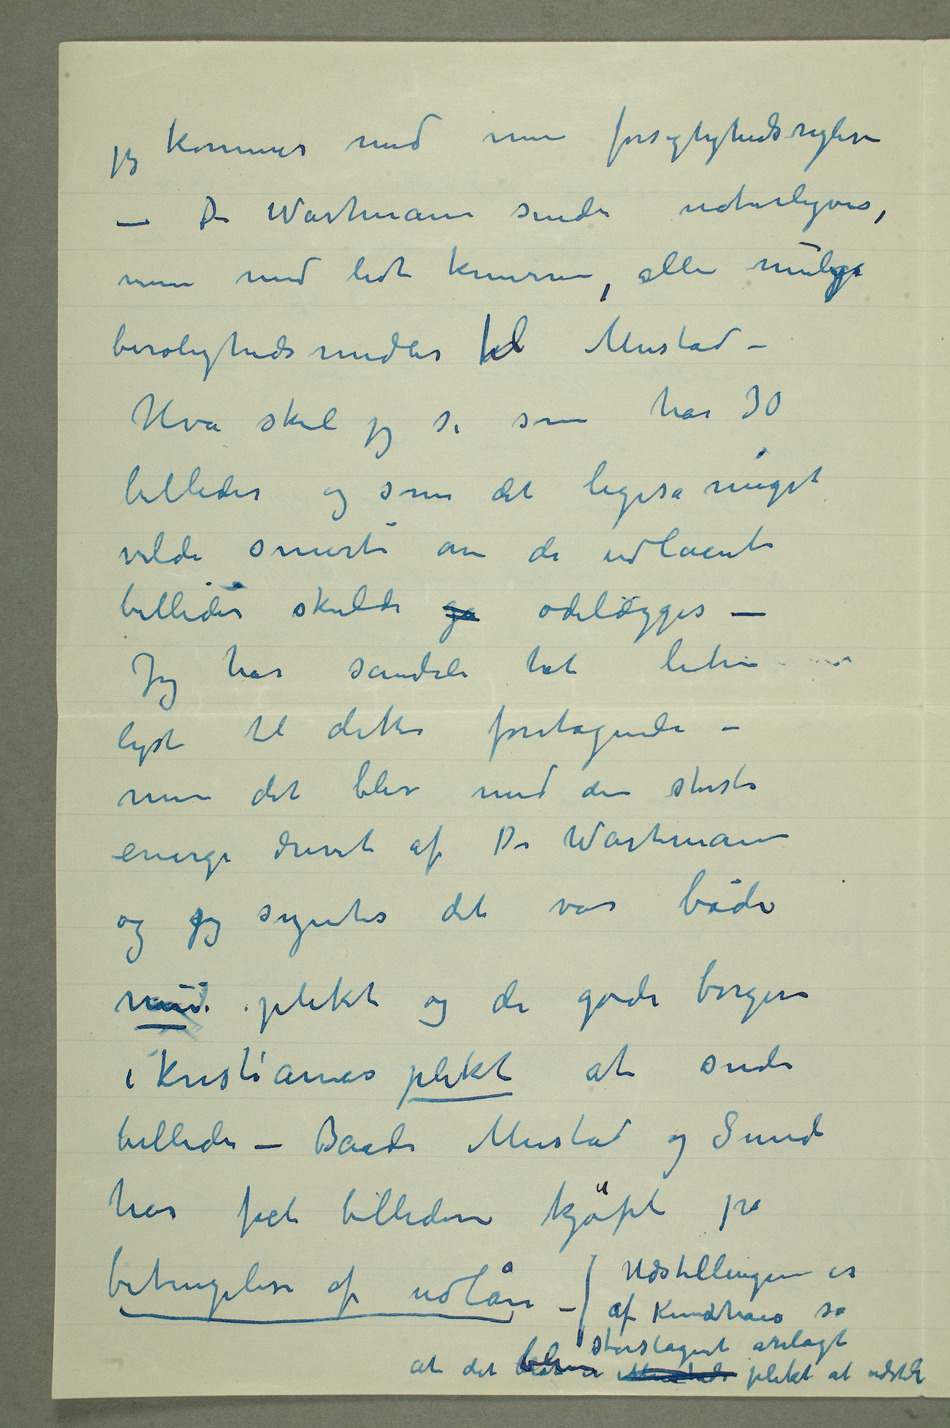 jeg kommer med mine forsigtighedsregler
– Dr Wartmann sender naturligvis,
men med lidt knurren, alle mulige
beroligheds midler til Mustad –
Hva skal jeg si som har 30
billeder og som det ligeså meget
vilde smerte om de udlaante
billeder skulde ga ødelægges –
Jeg har sandelig hat liten
lyst til dette foretagende –
men det blev med den største
energi drevet af Dr Wartmann
og jeg syntes det var både
min plikt og de gode borgere
i Kristianias plikt at sende
billeder – Baade Mustad og Sund
har fåt billedene kjøpt på
betingelse af udlån – Udstillingen er
af Kunsthaus så
storslagent anlagt
at det blir plikt at udstille